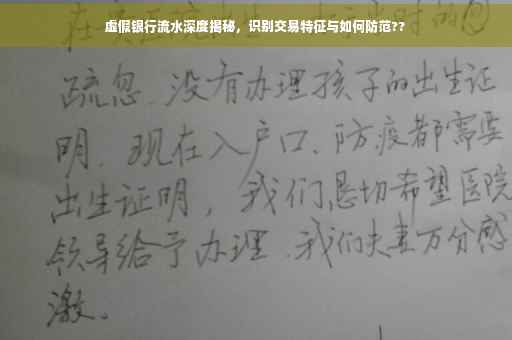 虚假银行流水深度揭秘，识别交易特征与如何防范??
疏忽、没有办理孩子的出生证
明、现在入户口、防疫都需要
出生证明，我们恳切希望医院
领导给予办理、我们夫妻万分感
激。